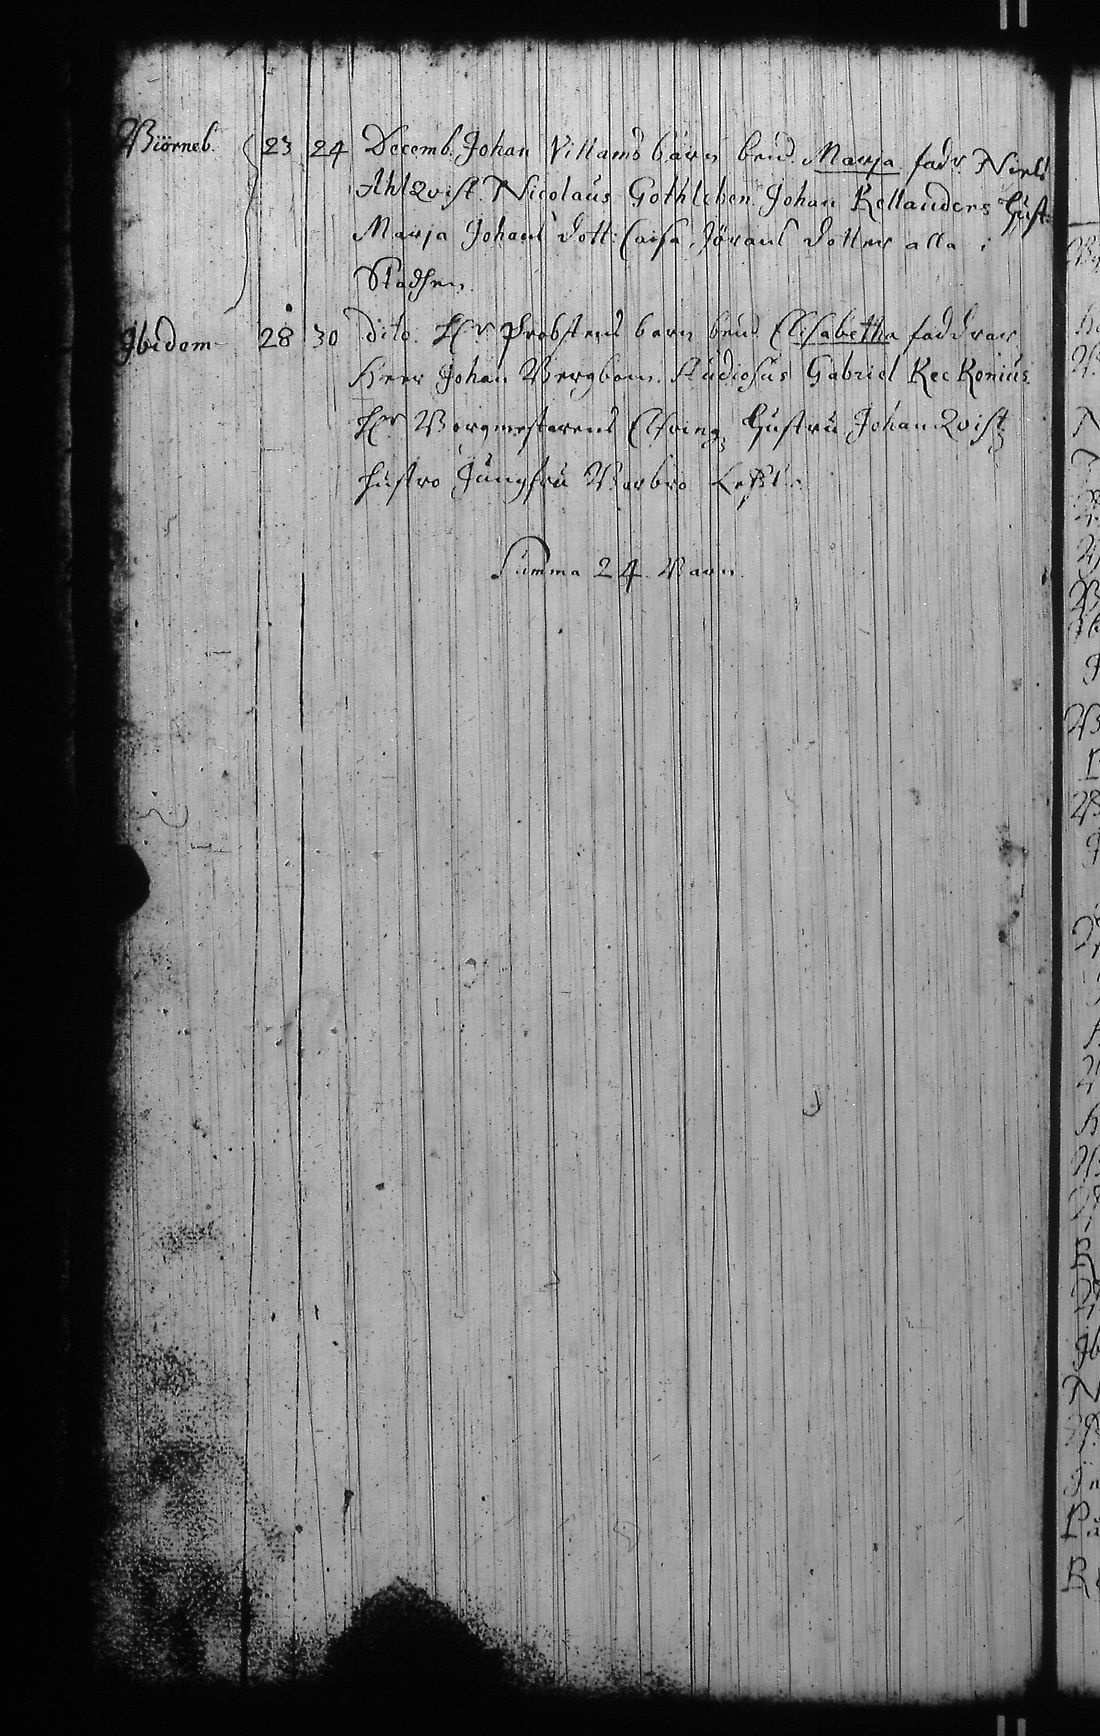 Biörneb. 23 24 Decemb. Johan Villams barn bend. Marja fadr. Niels
Ahlqvist. Nicolaus Gothleben Johan Kellanders Hust.
Marja Johans dott: Caisa Jörans dotter alla i
Stadhen
Ibidem 28 30 dito. Hr Probstens barn bend. Elisabetha faddrar
Herr Johan Bergbom. Studiosus Gabriel Keckonius
Hr Borgmestarens Hustru Johan Qvist
hustro Jungfru Barbro
Summa 24 Barn.